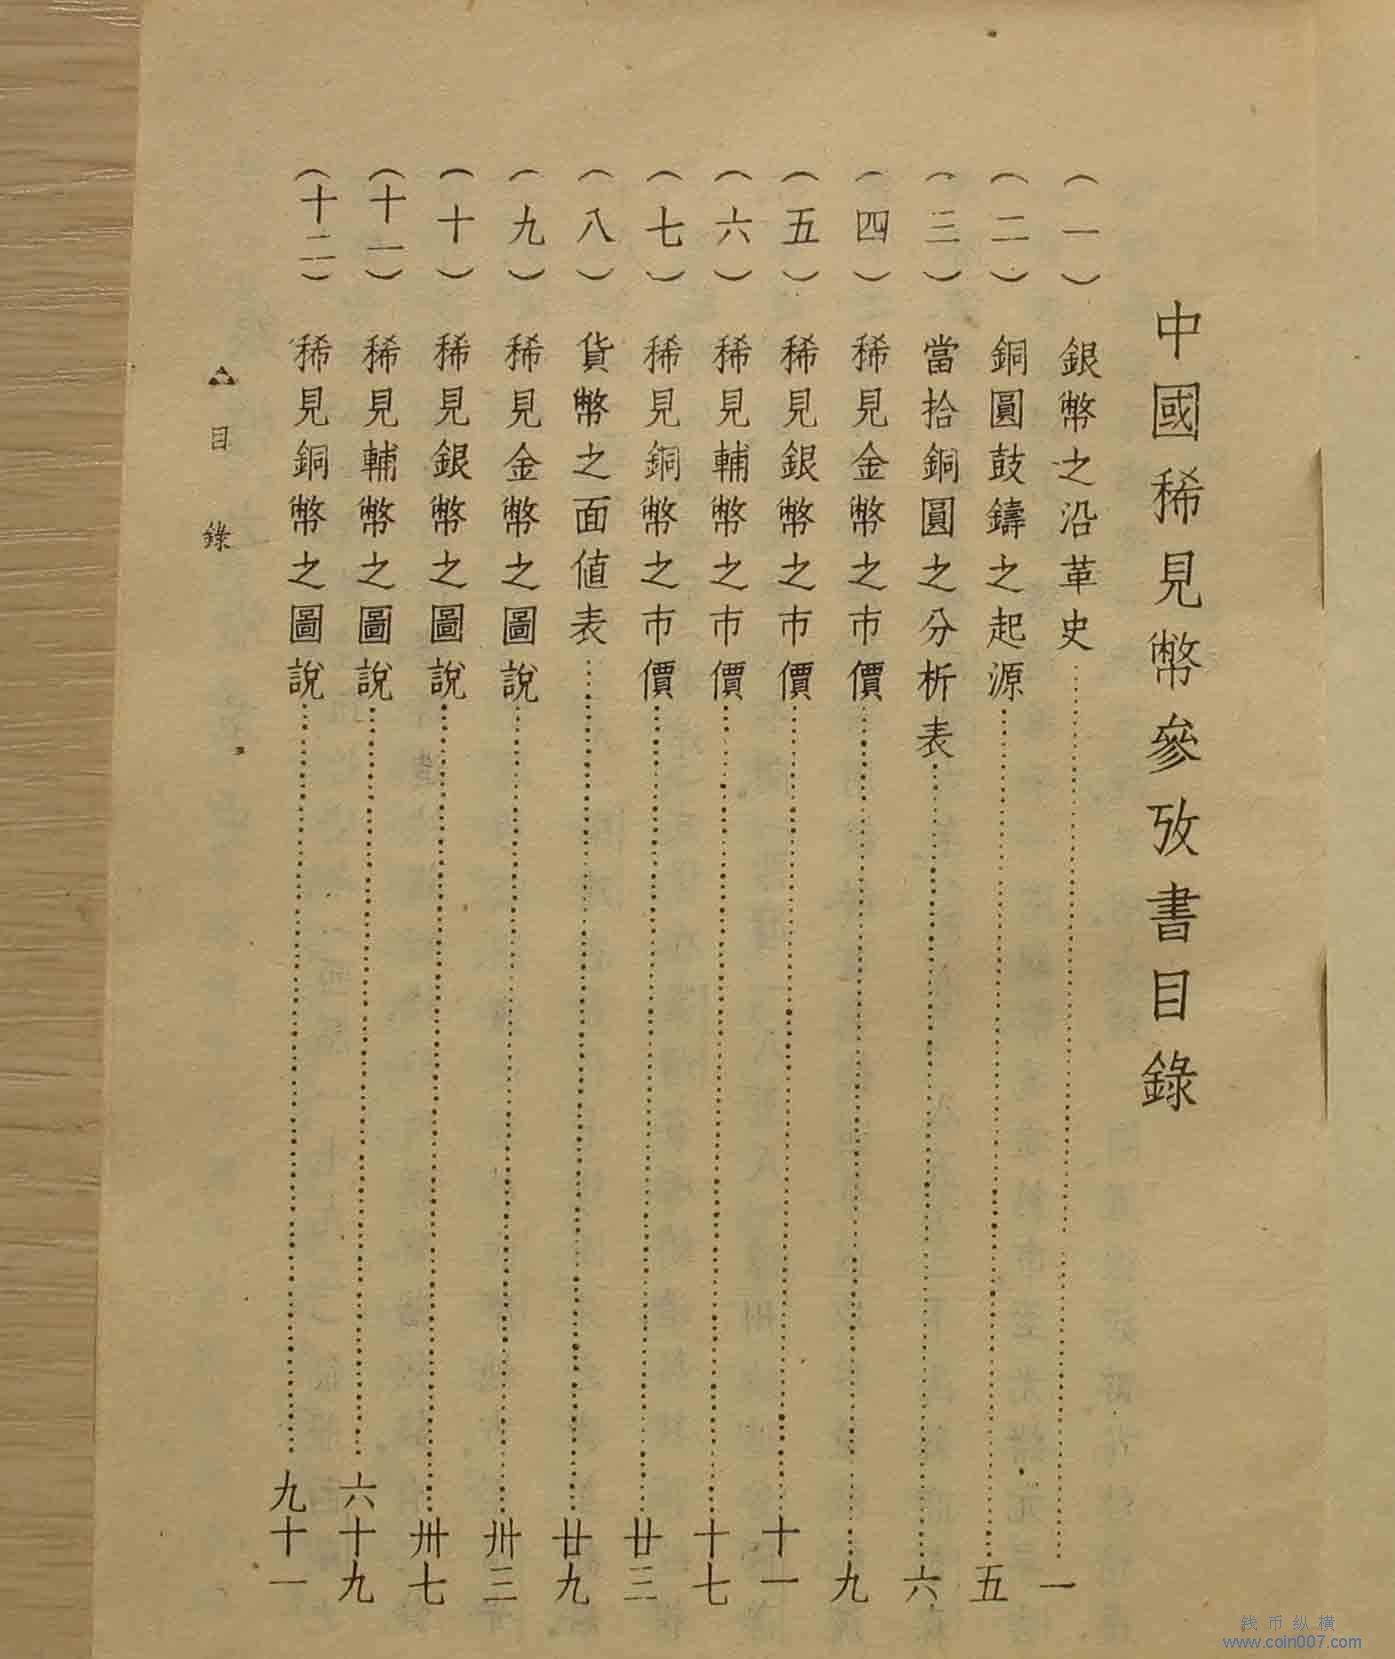 中國稀見幣參攷書目錄
(一)銀幣之沿革史……一
(二)銅圓鼓鑄之起源……五
(三)當拾銅圓之分析表……六
(四)稀見金幣之市價……九
(五)稀見銀幣之市價……十一
(六)稀見輔幣之市價……十七
(七)稀見銅幣之市價……廿三
(八)貨幣之面値表……廿九
(九)稀見金幣之圖說……卅三
(十)稀見銀幣之圖說……卅七
(十一)稀見輔幣之圖說……六十九
(十二)稀見銅幣之圖說……九十一
目錄
钱币纵横
www.coin007.com